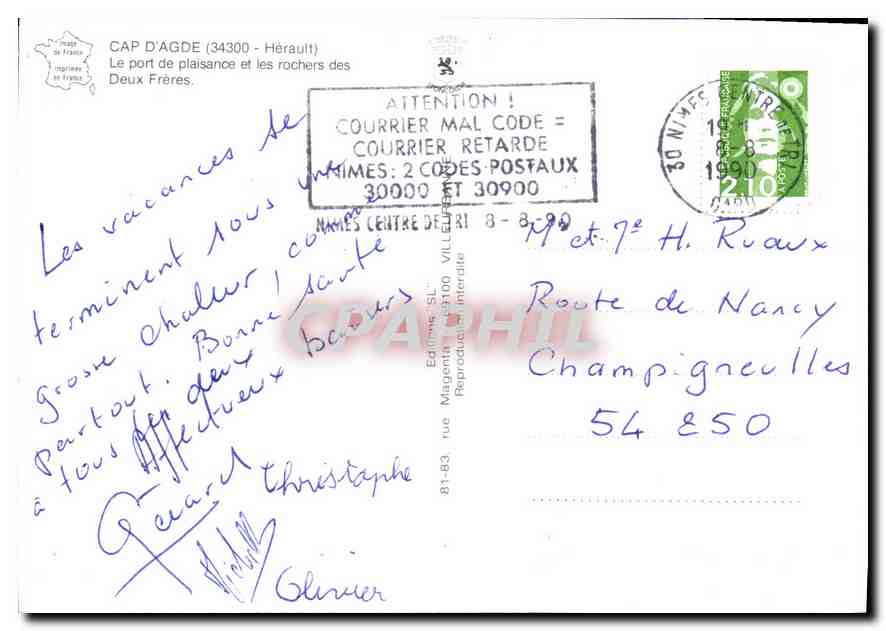 Image
de France
imprimée
en France
CAP D'AGDE (34300 - Hérault)
Le port de plaisance et les rochers des
Deux Frères.
ATTENTION !
COURRIER MAL CODE =
COURRIER RETARDE
NIMES : 2 CODES POSTAUX
30000 ET 30900
NIMES CENTRE DE TRI 8-8-90
30 NIMES CENTRE DE TRI
8-8
1990
GARD
2,10
LA POSTE
Les vacances se
terminent sous une
grosse chaleur, comme
partout. Bonne santé
à tous les deux
Affectueux baisers
Gérard
Christophe
Michel
Olivier
Editions "SL"
81-83, rue Magenta 69100 VILLEURBANNE
Reproduction interdite
Mr et Me H. Ruaux
Route de Nancy
Champigneulles
54 250
CPAPHIL